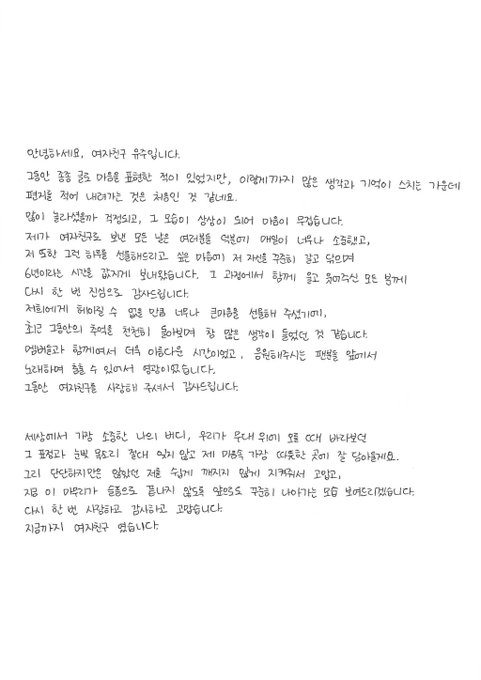 안녕하세요, 여자친구 유주입니다.
그동안 종종 글로 마음을 표현한 적이 있었지만, 이렇게까지 많은 생각과 기억이 스치는 가운데
편지를 적어 내려가는 것은 처음인 것 같네요.
많이 놀라셨을까 걱정되고, 그 모습이 상상이 되어 마음이 무겁습니다.
제가 여자친구로 보낸 모든 날은 여러분들 덕분에 매일이 너무나 소중했고,
저 또한 그런 하루를 선물해드리고 싶은 마음에 제 자신을 꾸준히 갈고 닦으며
6년이라는 시간을 값지게 보내왔습니다. 그 과정에서 함께 울고 웃어주신 모든 분께
다시 한 번 진심으로 감사드립니다.
저희에게 헤아릴 수 없을 만큼 너무나 큰마음을 선물해 주셨기에,
최근 그동안의 추억을 천천히 돌아보며 참 많은 생각이 들었던 것 같습니다.
멤버들과 함께여서 더욱 아름다운 시간이었고, 응원해주시는 팬분들 앞에서
노래하며 춤출 수 있어서 영광이었습니다.
그동안 여자친구를 사랑해 주셔서 감사드립니다.
세상에서 가장 소중한 나의 버디, 우리가 무대 위에 오를 때 바라보던
그 표정과 눈빛 목소리 절대 잊지 않고 제 마음속 가장 따뜻한 곳에 잘 담아둘게요.
그리 단단하지만은 않았던 저를 쉽게 깨지지 않게 지켜줘서 고맙고,
지금 이 마무리가 슬픔으로 끝나지 않도록 앞으로도 꾸준히 나아가는 모습 보여드리겠습니다.
다시 한 번 사랑하고 감사하고 고맙습니다.
지금까지 여자친구 였습니다.